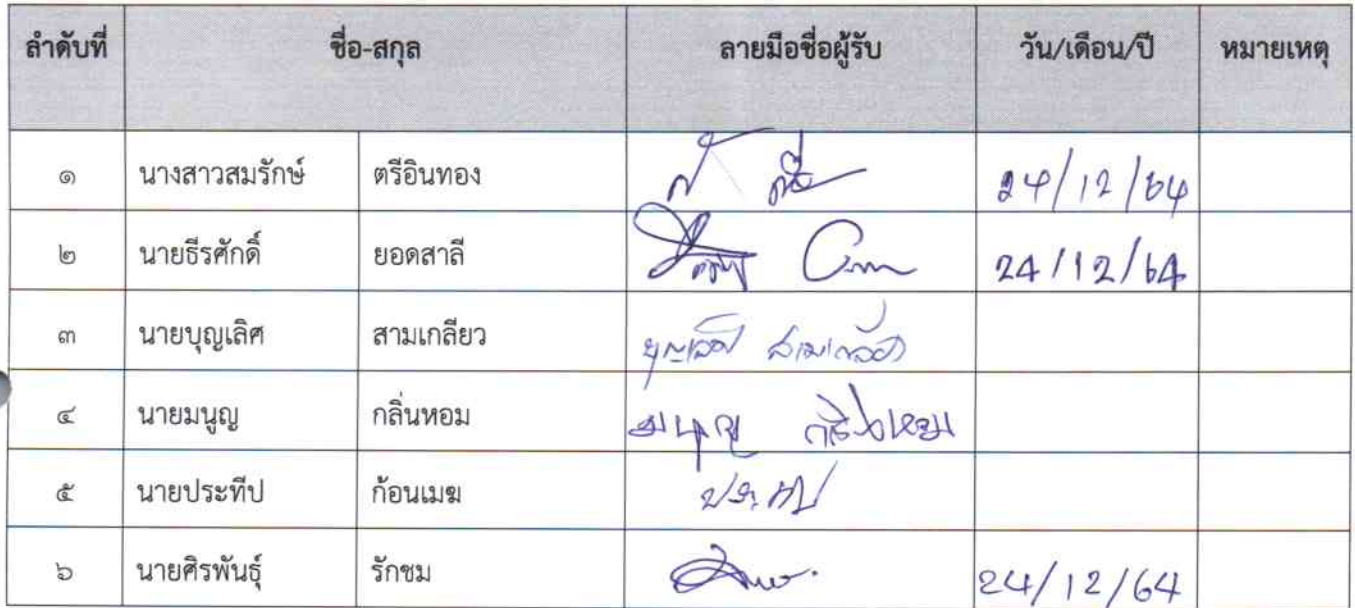 ลำดับที่ ชื่อ-สกุล ลายมือชื่อผู้รับ วัน/เดือน/ปี หมายเหตุ
๑ นางสาวสมรักษ์ ตรีอินทอง 24/12/64
๒ นายธีรศักดิ์ ยอดสาลี 24/12/64
๓ นายบุญเลิศ สามเกลียว บุญเลิศ สามเกลียว
๔ นายมนูญ กลิ่นหอม มนูญ กลิ่นหอม
๕ นายประทีป ก้อนเมฆ ประทีป
๖ นายศิรพันธุ์ รักชม 24/12/64